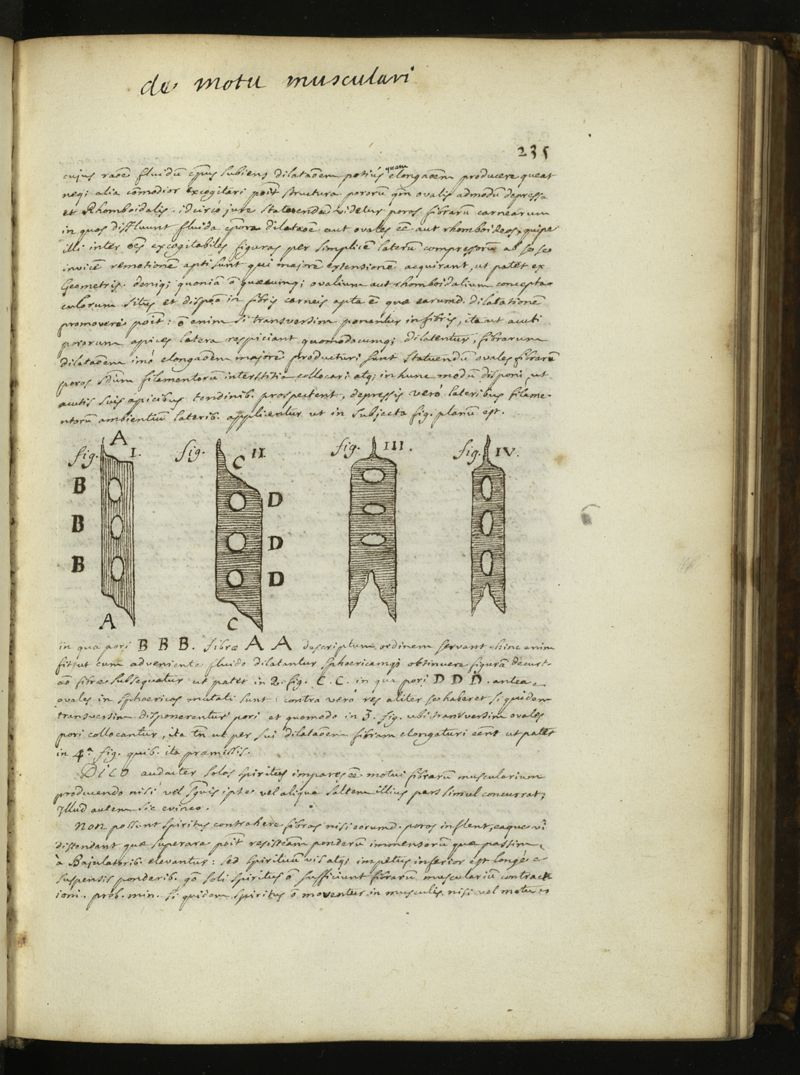 de motu musculari
235
cujus raoē fluidū ejus subiens dilataōem potiús quam elongaōem producere queat
neq; alia cōmodior excogitari poit structura pororū qm ovalis admodū depressa
et Rhomboidalis. idcircò jure statuendū videtur poros fibrarū carnearum
in quos diffluunt fluida ovales aut rhomboideos, quipe
illi inter oēs excogitabiles figuras per simplicē laterū compressorū ab se
invicē remotionē apti sunt qui majorē extensionē acquirant, ut patet ex
Geometris. deniq; quoniā ō quæcumq; ovalium aut rhomboidalium concepta
culorum situs et dispāo in fibris carneis apta ē quæ earumd. dilatationē
promovere poit: ō enim si transversim ponantur in fibris, ita ut acuti
pororum apices latera respiciant quomodocumq; dilatentur, fibrarum
dilataōem imò elongaōem majorē producturi sunt statuendū ovales fibrarū
poros sdum filamentorū interstitia collocari atq; in hunc modū disponi, ut
acutis suis apicibus tendinib. prospectent, depressis verò lateribus filame-
ntorū ambientium laterib. applicentur ut in subjecta fig. planū est.
fig. I. fig. II fig. III. fig. IV.
A C
B D
B D
B D
A C
in qua pori B B B. fibræ A A descriptum ordinem servant hinc enim
fit, ut cum adveniente fluido dilatantur sphoericamq; obtinuere figurā decurt-
aō fibræ subsequatur ut patet in 2. fig. C. C. in qua pori D D D. antea
ovales in sphoericos mutati sunt: contra verò res aliter se haberet si quidem
transversim disponerentur pori et quomodo in 3. fig. ubi transversim ovales
pori collocantur, ita tn ut per sui dilataōem fibram elongaturi eēnt ut patet
in 4.ª fig. quib. ita præmissis.
DICO audacter solos spiritus impares ēe motui fibrarū muscularium
producendo nisi vel sguis ipse vel aliqua saltem illius pars simul concurrat,
Illud autem sic evinco.
Non possunt spiritus contrahere fibras nisi eorumd. poros inflent, eaque vi
distendant quæ superare poit resistāam ponderū immensorū quæ passim
à Bajulatorib. elevantur: sed spirituū vis atq; impetus inferior est longè
suspensis ponderib. gō soli spiritus ō sufficiunt fibrarū muscularium contract-
ioni. prob. min. si quidem spiritus ō moventur in musculis nisi vel motu